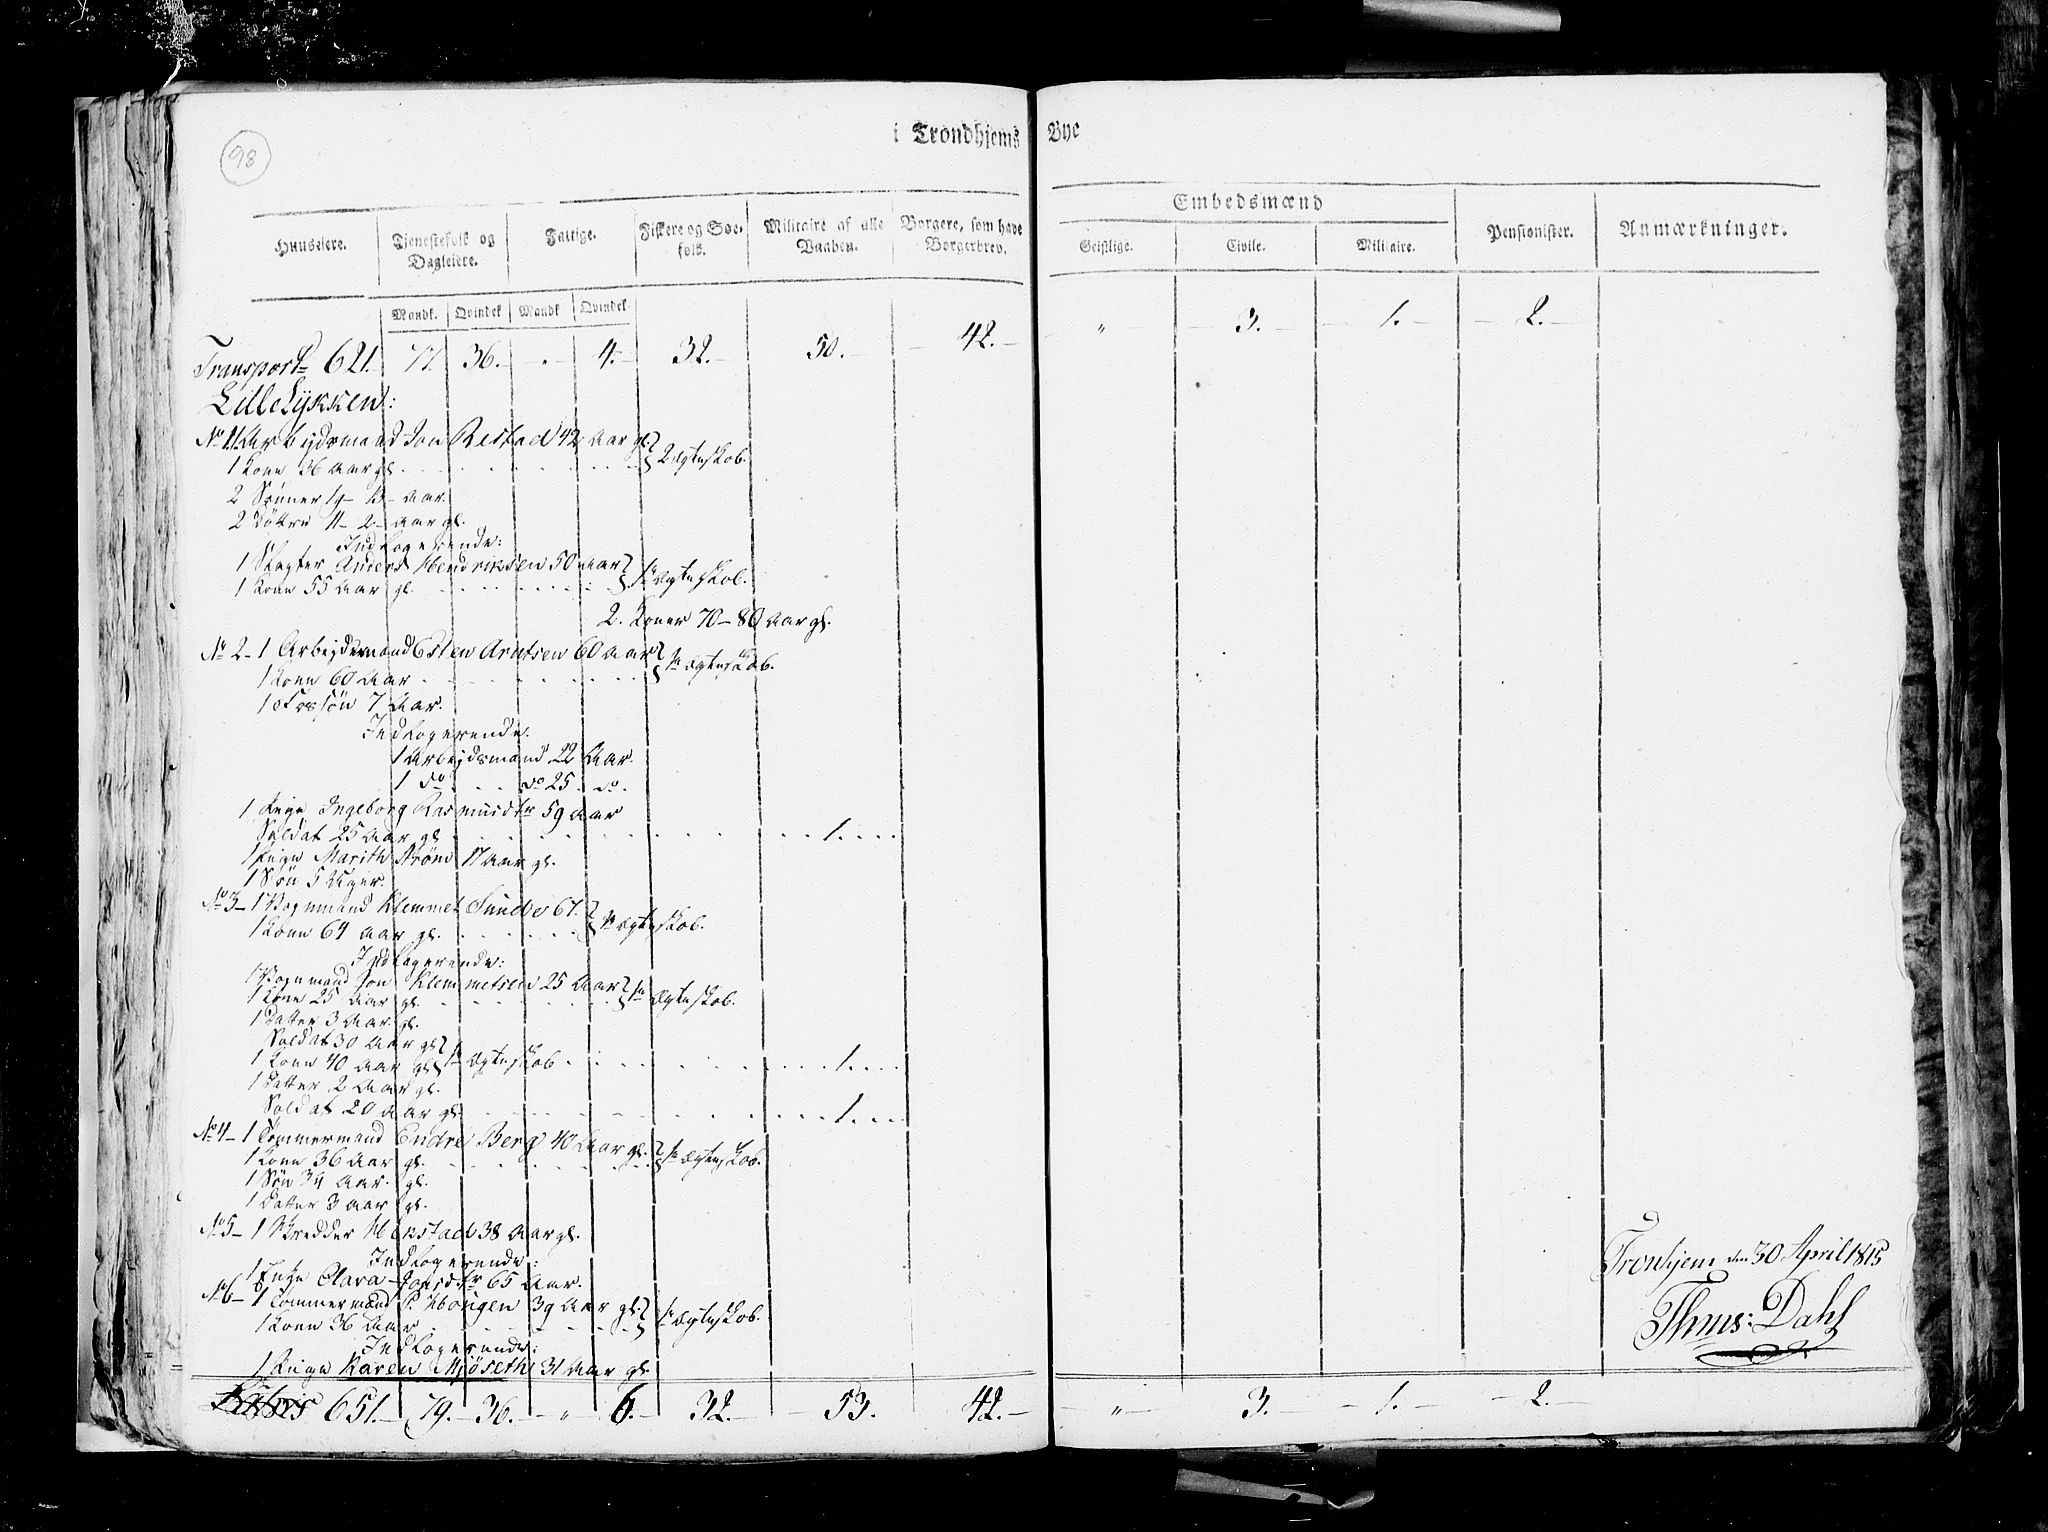 98
i Trondhjems Bye
Huuseiere. Tjenestefolk og Dagleiere. Fattige. Fiskere og Søefolk. Militaire af alle Vaaben. Borgere, som have Borgerbrev. Embedsmænd Pensionister. Anmærkninger.
Geistlige. Civile. Militaire.
Mandk. Qvindek Mandk Qvindek
Transport 621. 77. 36. " 4. 32. 50. 42. " 3. 1. 2.
Lillelykken:
No 1. 1 Arbejdsmand Jon Restad 42 Aar gl. } Ægteskab.
1 Kone 36 Aar gl.
2 Sønner 19- 13- Aar.
2 Døttre 11- 2- Aar gl.
Indlogerende:
1 Slagter Anders Hendriksen 50 Aar } i Ægteskab.
1 Kone 55 Aar gl.
2. Koner 70- 80 Aar gl.
No 2- 1 Arbejdsmand Esten Arntsen 60 Aar } i Ægteskab.
1 Kone 60 Aar
1 7 Aar.
Indlogerende:
1 Arbejdsmand 22 Aar.
1 do do 25. do.
1 Pige Ingeborg Rasmusdtr 59 Aar
Soldat 25 Aar gl. 1.
1 Pige Marith Strøm 17 Aar gl.
1 Søn 5 Uger.
No 3- 1 Vognmand Klemmet Sunde 67. } i Ægteskab.
1 Kone 64 Aar gl.
Indlogerende:
1 Vognmand Jon Klemmetsen 25 Aar } i Ægteskab.
1 Kone 25 Aar gl.
1 Datter 3 Aar gl.
Soldat 30 Aar gl. } i Ægteskab 1.
1 Kone 40 Aar gl.
1 Datter 2 Aar gl.
Soldat 20 Aar gl. 1.
No 4- 1 Tømmermand Endre Berg 40 Aar gl. } i Ægteskab.
1 Kone 36 Aar gl.
1 Søn 3¼ Aar gl.
1 Datter 3 Aar gl.
No 5- 1 Skredder Mokstad 38 Aar gl.
Indlogerende:
1 Enke Clara Jonsdtr 65 Aar.
No 6- 1 Tømmermand P. Hougen 39 Aar gl. } i Ægteskab.
1 Kone 36 Aar
Indlogerende:
1 Pige Karen Mjøseth 31 Aar gl.
Tronhjem den 30 April 1815
Thms: Dahl
Lateris 651. 79. 36. " 6. 32. 53. 42. " 3. 1. 2.